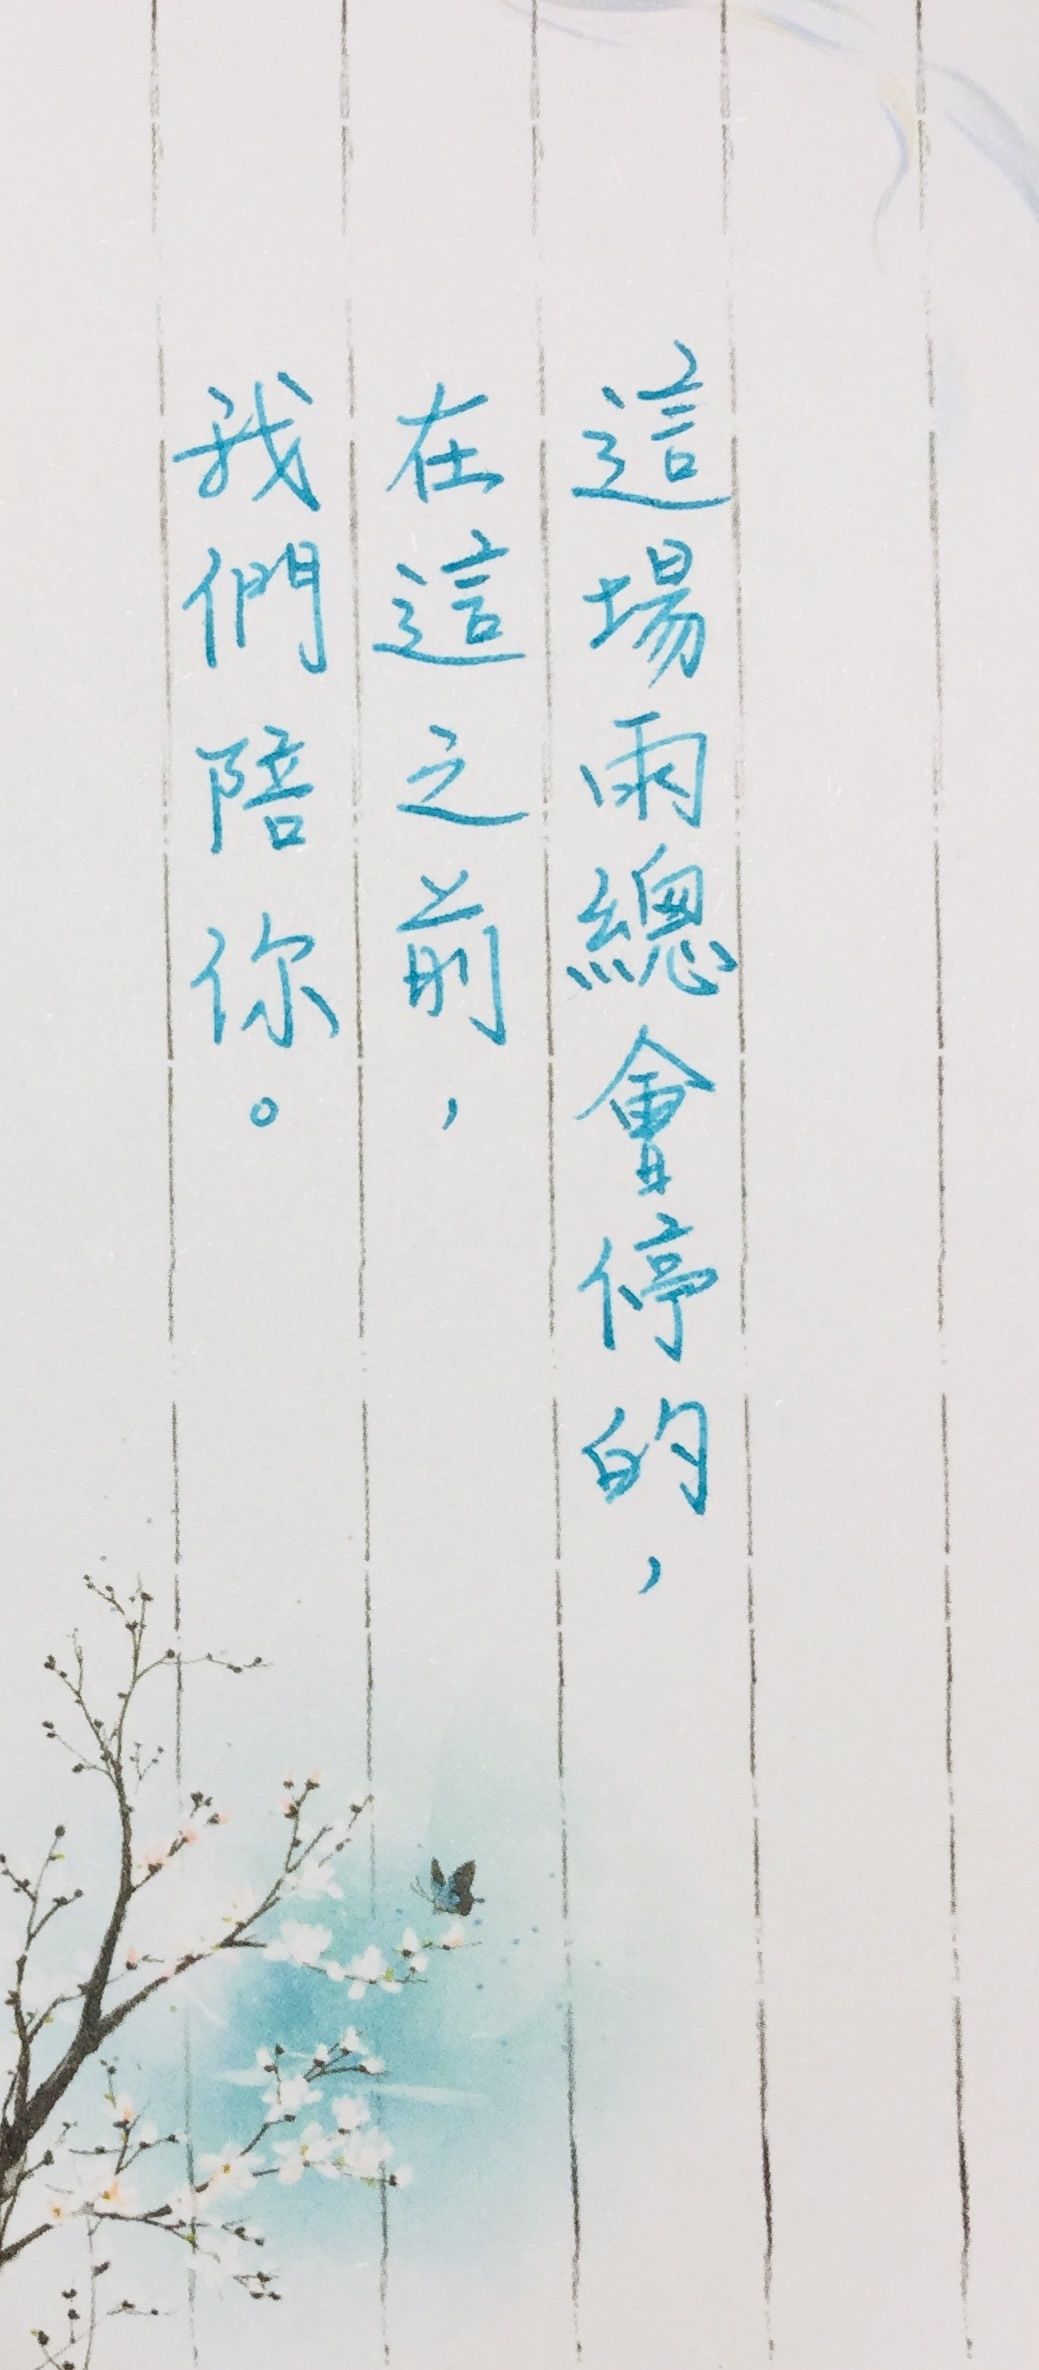 這場雨總會停的，
在這之前，
我們陪你。